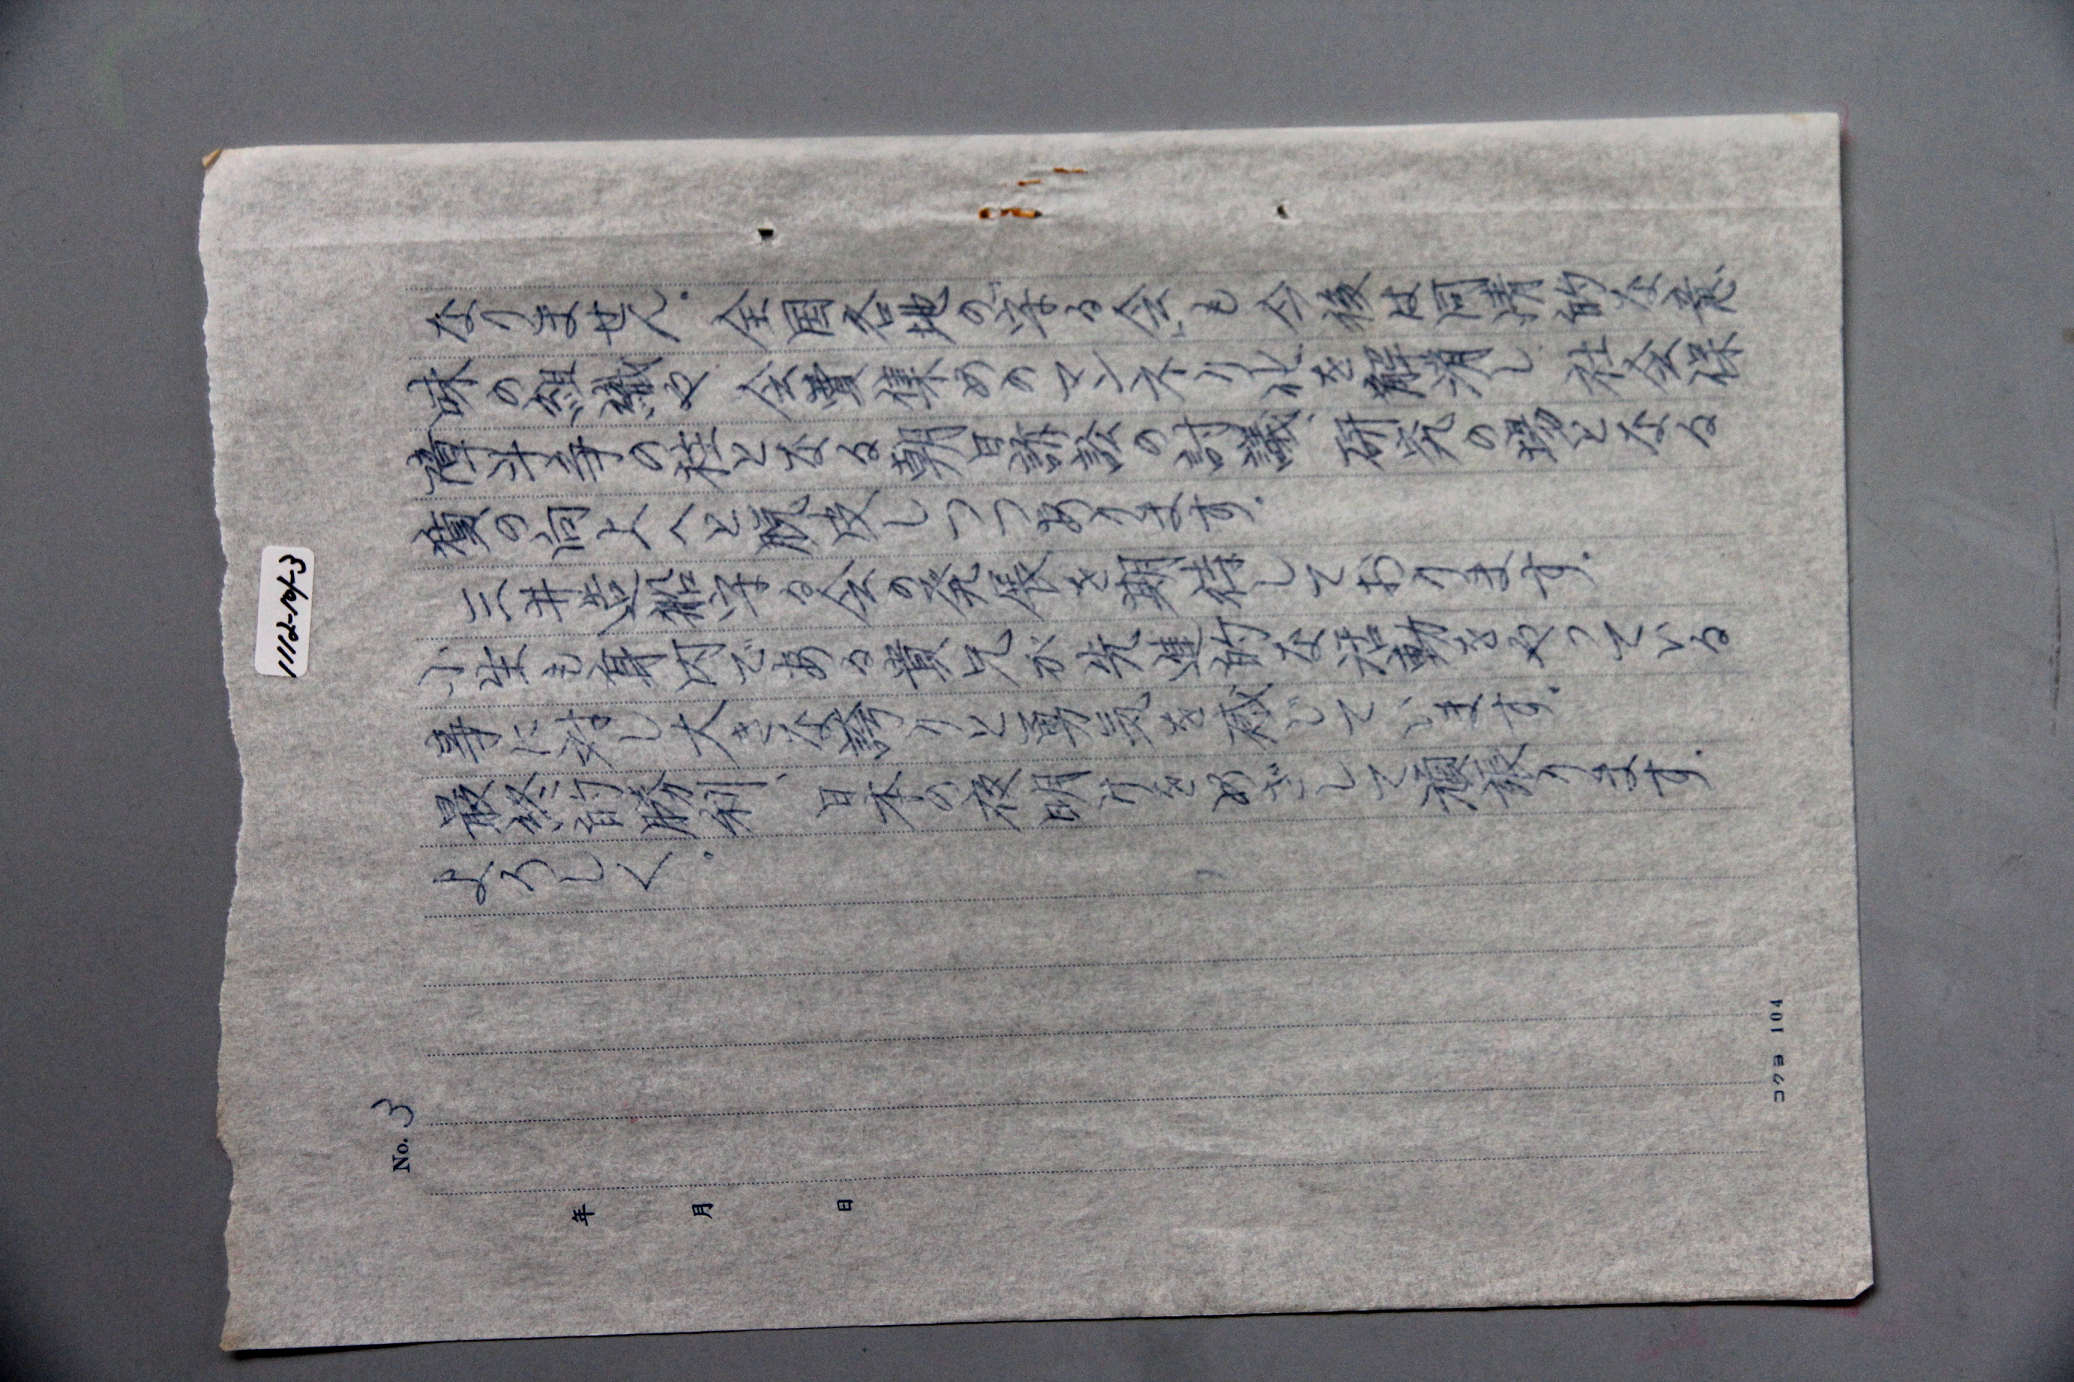 1112-104-3
No. 3
年 月 日
なりません。全国各地の守る会も今後は同情的な意
味の組織や会費集めのマンネリ化を解消し 社会保
障斗争の柱となる朝日訴訟の討議、研究の場となる
質の向上へと脱皮しつつあります。
三井造船守る会の発展を期待しております。
小生も身内である貴兄が先進的な活動をやっている
事に対し大きな誇りと勇気を感じています。
最終的勝利、日本の夜明けをめざして頑張ります。
よろしく。
コクヨ 104